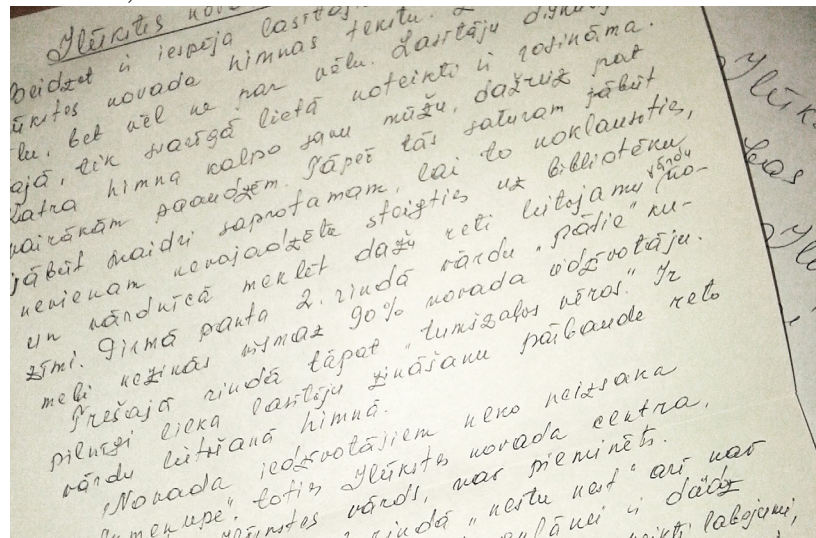 Ilūkstes nov
Beidzet ir iespēja lasītāj
ūkstes novada himnas tekstu.
lu, bet vēl ne par vēlu. Lasītāju
ajā, tik svarīgā lietā noteikti ir rosināma.
Katra himna kalpo savu mūžu, dažreiz pat
vairākām paaudzēm. Tāpēc tās saturam jābūt
jābūt skaidri saprotamam, lai to noklausoties,
nevienam nevajadzētu steigties uz bibliotēku
un vārdnīcā meklēt dažu reti lietojamu vārdu no-
zīmi. Pirmā panta 2. rindā vārdu "pātie" ku-
meli nezinās vismaz 90% novada iedzīvotāju.
Trešajā rindā tāpat "tumšzaļos vēros". Ir
pilnīgi lieka lasītāju zināšanu pārbaude reto
vārdu lietošanā himnā.
"Novada iedzīvotājiem neko neizsaka
menupe", toties Ilūkstes novada centra,
Ilūkstes vārds, nav pieminēts.
rindā "nestu nest" arī nav
ir dādz
labojumi,
Ilūks
bas
Ilū